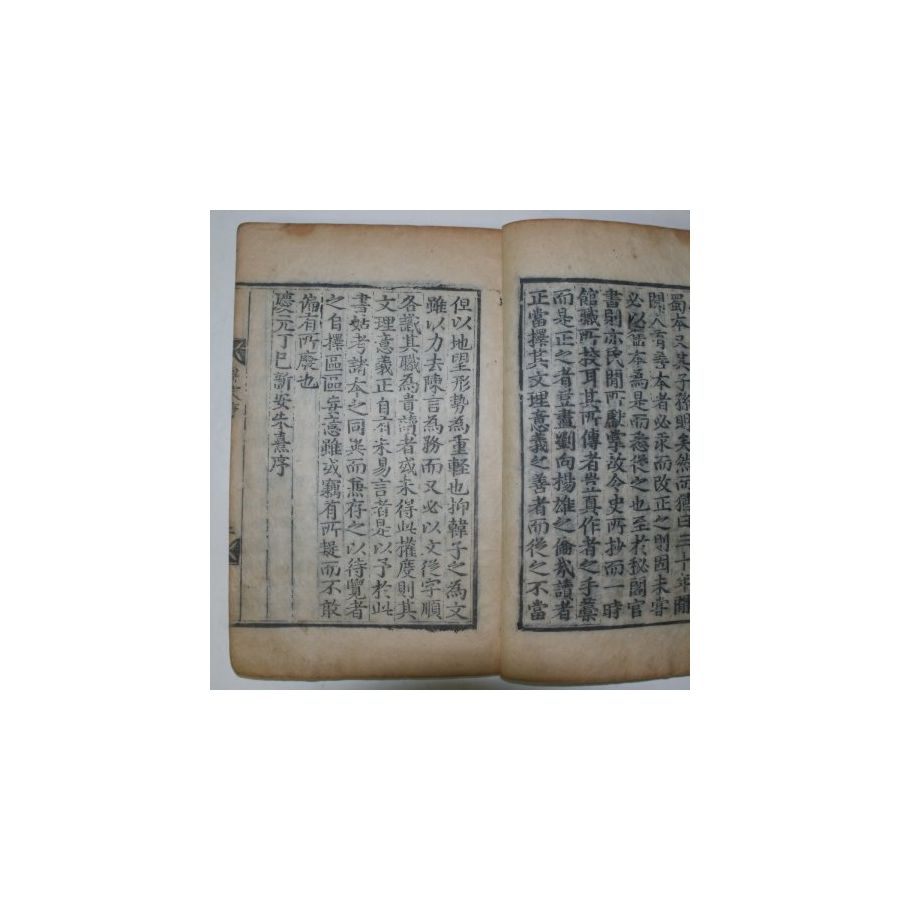 蜀本又其子孫明矣然而猶曰三十年前
聞人有善本者必求而改正之則固未嘗
必以舊本為是而悉從之也至於秘閣官
書則亦民間所獻掌故令史所抄而一時
館職所校耳其所傳者豈真作者之手藁
而是正之者豈盡劉向揚雄之倫哉讀者
正當擇其文理意義之善者而從之不當
但以地望形勢為重輕也抑韓子之為文
雖以力去陳言為務而又必以文從字順
各識其職為貴讀者或未得此權度則其
文理意義正自有未易言者是以予於此
書姑考諸本之同異而兼存之以待覽者
之自擇區區妄意雖或竊有所疑而不敢
偏有所廢也
慶元丁巳新安朱熹序